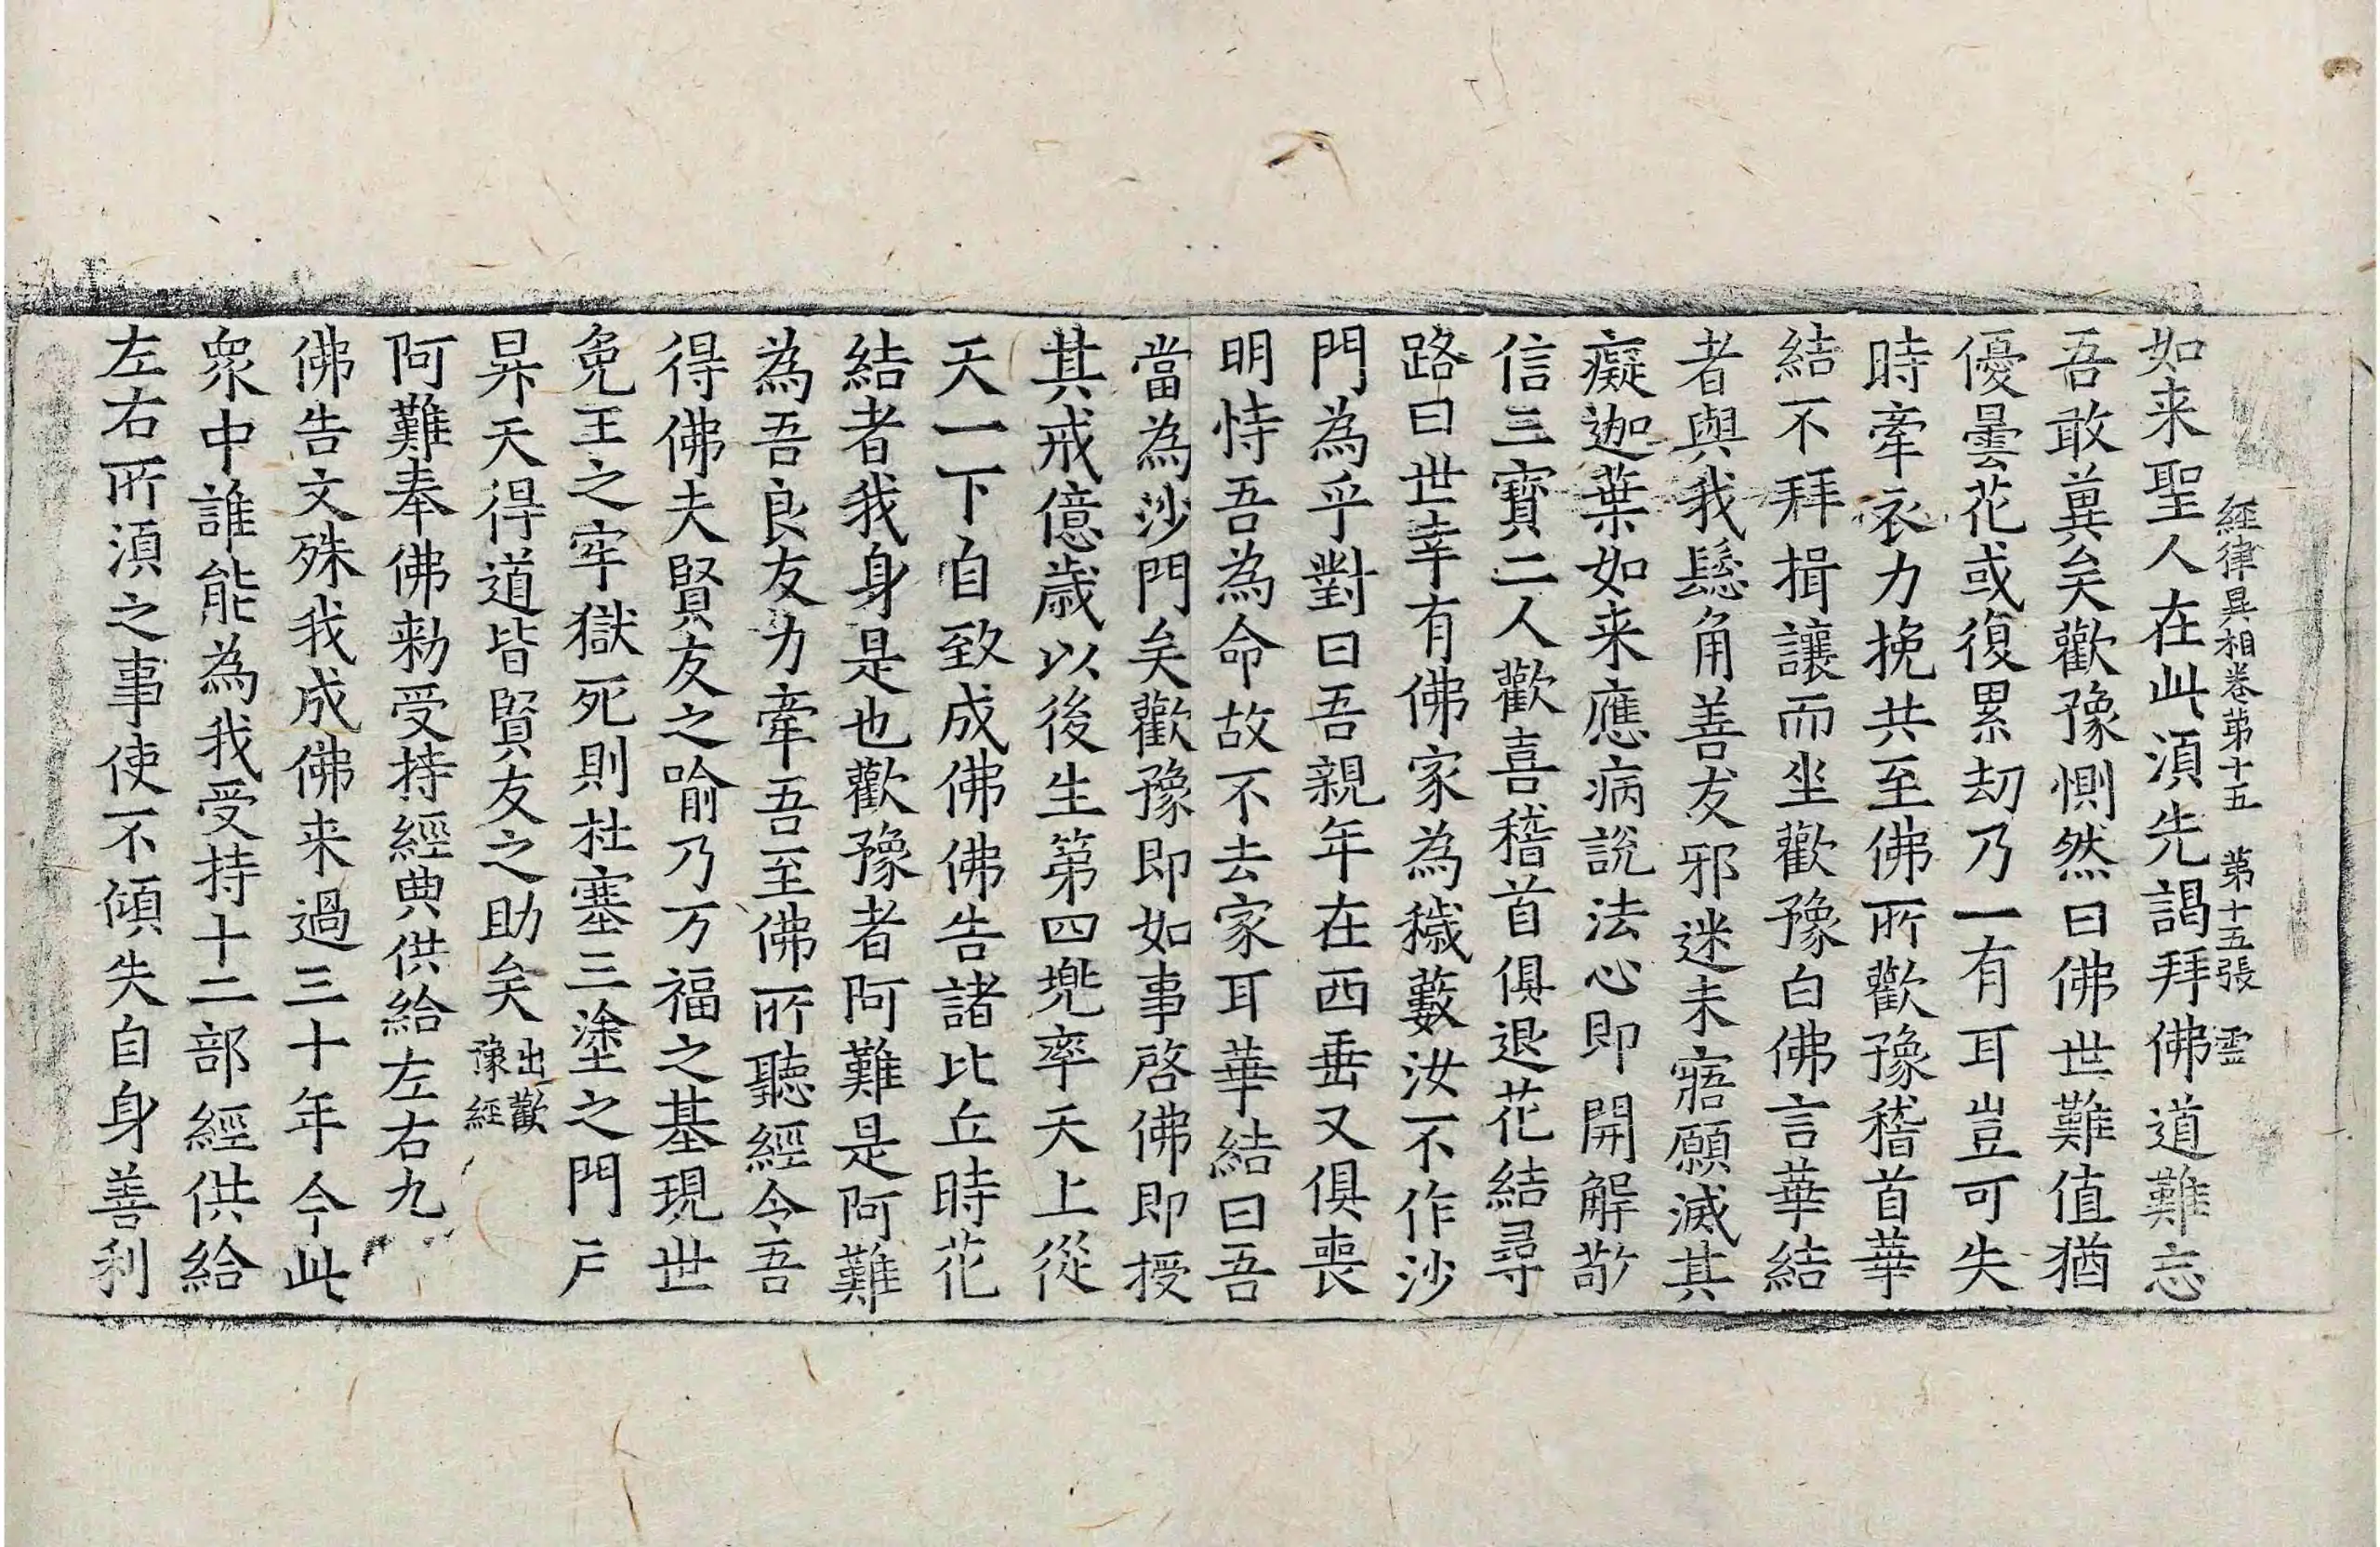 經律異相卷第十五　第十五張　霊
如来聖人在此湏先謁拜佛道難忘
吾敢兾矣歡豫惻然曰佛世難值猶
優曇花或復累劫乃一有耳豈可失
時牽衣力挽共至佛所歡豫稽首華
結不拜揖讓而坐歡豫白佛言華結
者與我髫角善友邪迷未寤願滅其
癡迦葉如来應病說法心即開解敬
信三寶二人歡喜稽首俱退花結尋
路曰世幸有佛家為穢藪汝不作沙
門為乎對曰吾親年在西垂又俱喪
明恃吾為命故不去家耳華結曰吾
當為沙門矣歡豫即如事啓佛即授
其戒億歳以後生第四兠率天上從
天一下自致成佛佛告諸比丘時花
結者我身是也歡豫者阿難是阿難
為吾良友力牽吾至佛所聽經今吾
得佛夫賢友之喻乃万福之基現世
免王之牢獄死則杜塞三塗之門戶
昇天得道皆賢友之助矣出歡豫經
阿難奉佛勑受持經典供給左右九
佛告文殊我成佛来過三十年今此
衆中誰能為我受持十二部經供給
左右所湏之事使不傾失自身善利